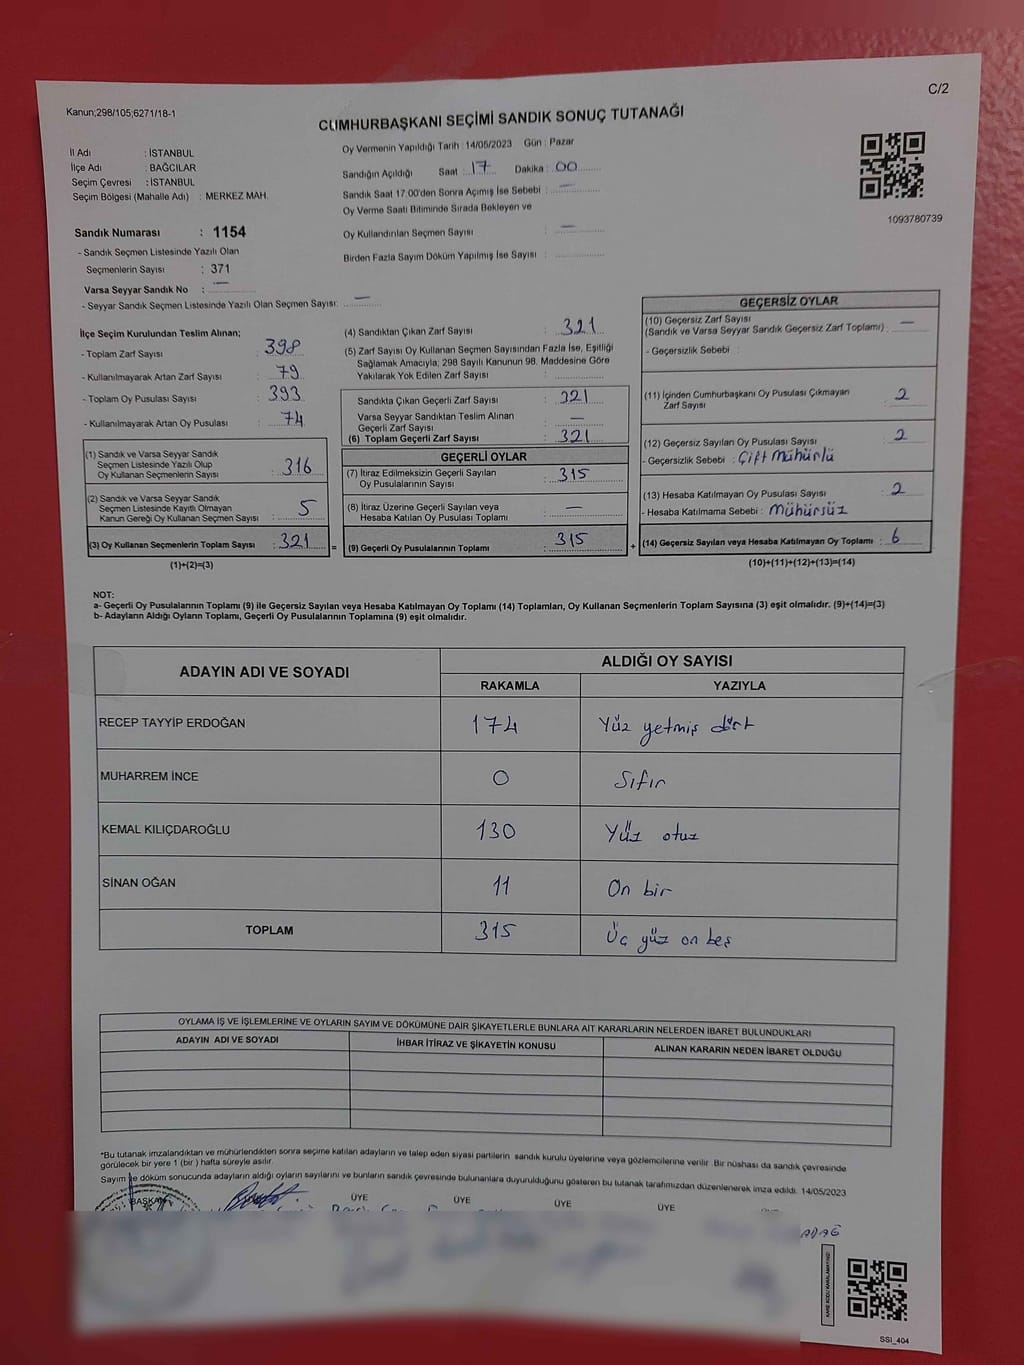 C/2
Kanun;298/105;6271/18-1
CUMHURBAŞKANI SEÇİMİ SANDIK SONUÇ TUTANAĞI
İl Adı : İSTANBUL
İlçe Adı : BAĞCILAR
Seçim Çevresi : İSTANBUL
Seçim Bölgesi (Mahalle Adı) : MERKEZ MAH.
Sandık Numarası : 1154
- Sandık Seçmen Listesinde Yazılı Olan
Seçmenlerin Sayısı : 371
Varsa Seyyar Sandık No : —
- Seyyar Sandık Seçmen Listesinde Yazılı Olan Seçmen Sayısı: —
Oy Vermenin Yapıldığı Tarih : 14/05/2023 Gün : Pazar
Sandığın Açıldığı Saat : 17 Dakika : 00
Sandık Saat 17:00'den Sonra Açımış İse Sebebi : —
Oy Verme Saati Bitiminde Sırada Bekleyen ve
Oy Kullandırılan Seçmen Sayısı : —
Birden Fazla Sayım Döküm Yapılmış İse Sayısı :
1093780739
İlçe Seçim Kurulundan Teslim Alınan;
- Toplam Zarf Sayısı : 398
- Kullanılmayarak Artan Zarf Sayısı : 79
- Toplam Oy Pusulası Sayısı : 393
- Kullanılmayarak Artan Oy Pusulası : 74
(1) Sandık ve Varsa Seyyar Sandık
Seçmen Listesinde Yazılı Olup
Oy Kullanan Seçmenlerin Sayısı : 316
(2) Sandık ve Varsa Seyyar Sandık
Seçmen Listesinde Kayıtlı Olmayan
Kanun Gereği Oy Kullanan Seçmen Sayısı : 5
(3) Oy Kullanan Seçmenlerin Toplam Sayısı : 321 =
(1)+(2)=(3)
(4) Sandıktan Çıkan Zarf Sayısı : 321
(5) Zarf Sayısı Oy Kullanan Seçmen Sayısından Fazla İse, Eşitliği
Sağlamak Amacıyla; 298 Sayılı Kanunun 98. Maddesine Göre
Yakılarak Yok Edilen Zarf Sayısı :
Sandıkta Çıkan Geçerli Zarf Sayısı : 321
Varsa Seyyar Sandıktan Teslim Alınan
Geçerli Zarf Sayısı : —
(6) Toplam Geçerli Zarf Sayısı : 321
GEÇERLİ OYLAR
(7) İtiraz Edilmeksizin Geçerli Sayılan
Oy Pusulalarının Sayısı : 315
(8) İtiraz Üzerine Geçerli Sayılan veya
Hesaba Katılan Oy Pusulası Toplamı : —
(9) Geçerli Oy Pusulalarının Toplamı : 315 +
GEÇERSİZ OYLAR
(10) Geçersiz Zarf Sayısı
(Sandık ve Varsa Seyyar Sandık Geçersiz Zarf Toplamı) : —
- Geçersizlik Sebebi :
(11) İçinden Cumhurbaşkanı Oy Pusulası Çıkmayan
Zarf Sayısı : 2
(12) Geçersiz Sayılan Oy Pusulası Sayısı : 2
- Geçersizlik Sebebi : Çift Mühürlü
(13) Hesaba Katılmayan Oy Pusulası Sayısı : 2
- Hesaba Katılmama Sebebi : Mühürsüz
(14) Geçersiz Sayılan veya Hesaba Katılmayan Oy Toplamı : 6
(10)+(11)+(12)+(13)=(14)
NOT:
a- Geçerli Oy Pusulalarının Toplamı (9) ile Geçersiz Sayılan veya Hesaba Katılmayan Oy Toplamı (14) Toplamları, Oy Kullanan Seçmenlerin Toplam Sayısına (3) eşit olmalıdır. (9)+(14)=(3)
b- Adayların Aldığı Oyların Toplamı, Geçerli Oy Pusulalarının Toplamına (9) eşit olmalıdır.
ADAYIN ADI VE SOYADI ALDIĞI OY SAYISI
RAKAMLA YAZIYLA
RECEP TAYYİP ERDOĞAN 174 Yüz yetmiş dört
MUHARREM İNCE 0 Sıfır
KEMAL KILIÇDAROĞLU 130 Yüz otuz
SİNAN OĞAN 11 On bir
TOPLAM 315 Üç yüz on beş
OYLAMA İŞ VE İŞLEMLERİNE VE OYLARIN SAYIM VE DÖKÜMÜNE DAİR ŞİKAYETLERLE BUNLARA AİT KARARLARIN NELERDEN İBARET BULUNDUKLARI
ADAYIN ADI VE SOYADI İHBAR İTİRAZ VE ŞİKAYETİN KONUSU ALINAN KARARIN NEDEN İBARET OLDUĞU
*Bu tutanak imzalandıktan ve mühürlendikten sonra seçime katılan adayların ve talep eden siyasi partilerin sandık kurulu üyelerine veya gözlemcilerine verilir. Bir nüshası da sandık çevresinde
görülecek bir yere 1 (bir ) hafta süreyle asılır.
Sayım ve döküm sonucunda adayların aldığı oyların sayılarını ve bunların sandık çevresinde bulunanlara duyurulduğunu gösteren bu tutanak tarafımızdan düzenlenerek imza edildi. 14/05/2023
BAŞKAN ÜYE ÜYE ÜYE ÜYE
SSI_404